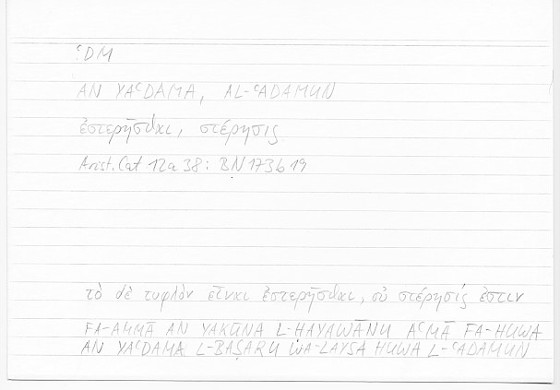 ʿDM
AN YAʿDAMA, AL-ʿADAMUN
ἐστερῆσθαι, στέρησις
Arist. Cat 12a 38: BN 173b 19
τὸ δὲ τυφλὸν εἶναι ἐστερῆσθαι, οὐ στέρησίς ἐστιν
FA-AMMĀ AN YAKŪNA L-ḤAYAWĀNU AʿMĀ FA-HUWA
AN YAʿDAMA L-BAṢARU WA-LAYSA HUWA L-ʿADAMUN